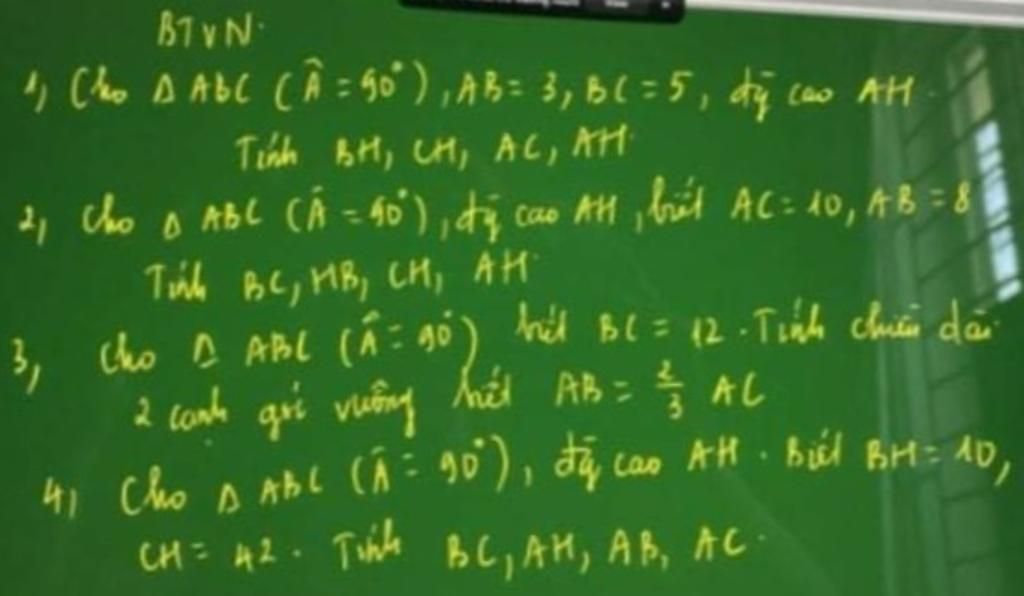 BTVN.
1, Cho Δ ABC (Â = 90°), AB = 3, BC = 5, đg̃ cao AH.
Tính BH, CH, AC, AH.
2, Cho Δ ABC (Â = 90°), đg̃ cao AH, biết AC = 10, AB = 8
Tính BC, HB, CH, AH.
3, Cho Δ ABC (Â = 90°) biết BC = 12. Tính chiều dài
2 cạnh góc vuông biết AB = 2/3 AC
4, Cho Δ ABC (Â = 90°), đg̃ cao AH. Biết BH = 10,
CH = 42. Tính BC, AH, AB, AC.